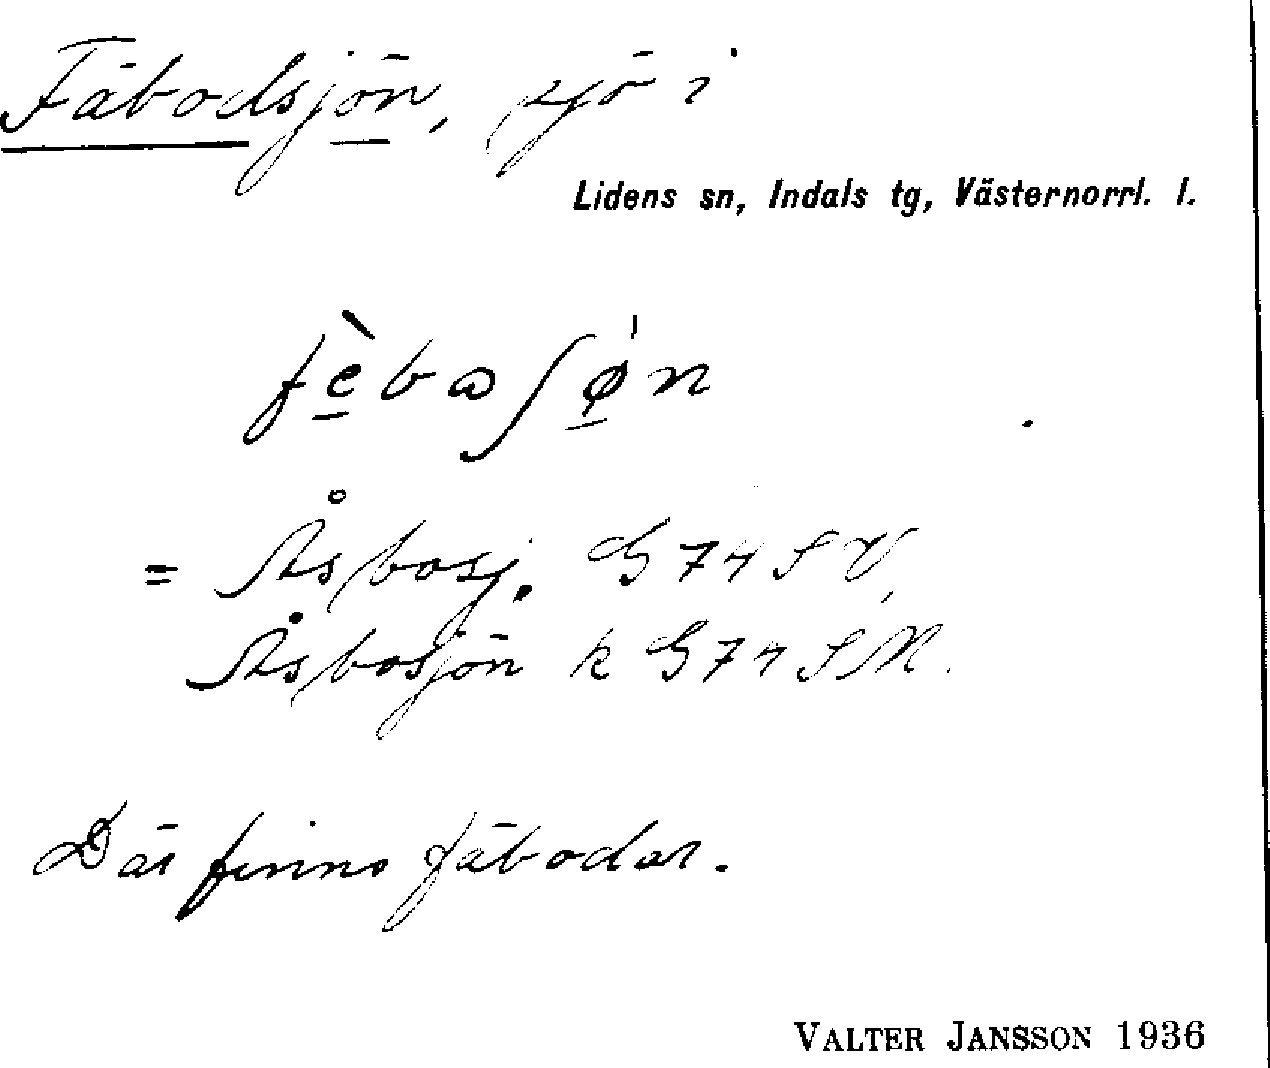 Fäbodsjön, sjö i
Lidens sn, Indals tg, Västernorrl. l.
fèbɷʃø̍n
= Åsbosj. G 74 SV,
Åsbosjön k G 74 SV.
Där finns fäbodar.
VALTER JANSSON 1936